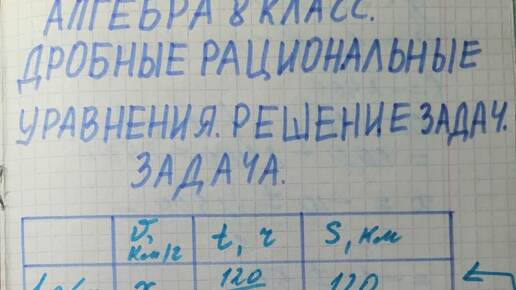 АЛГЕБРА 8 КЛАСС.
ДРОБНЫЕ РАЦИОНАЛЬНЫЕ
УРАВНЕНИЯ. РЕШЕНИЕ ЗАДАЧ.
ЗАДАЧА.
v, км/г t, ч S, км
x 120 120